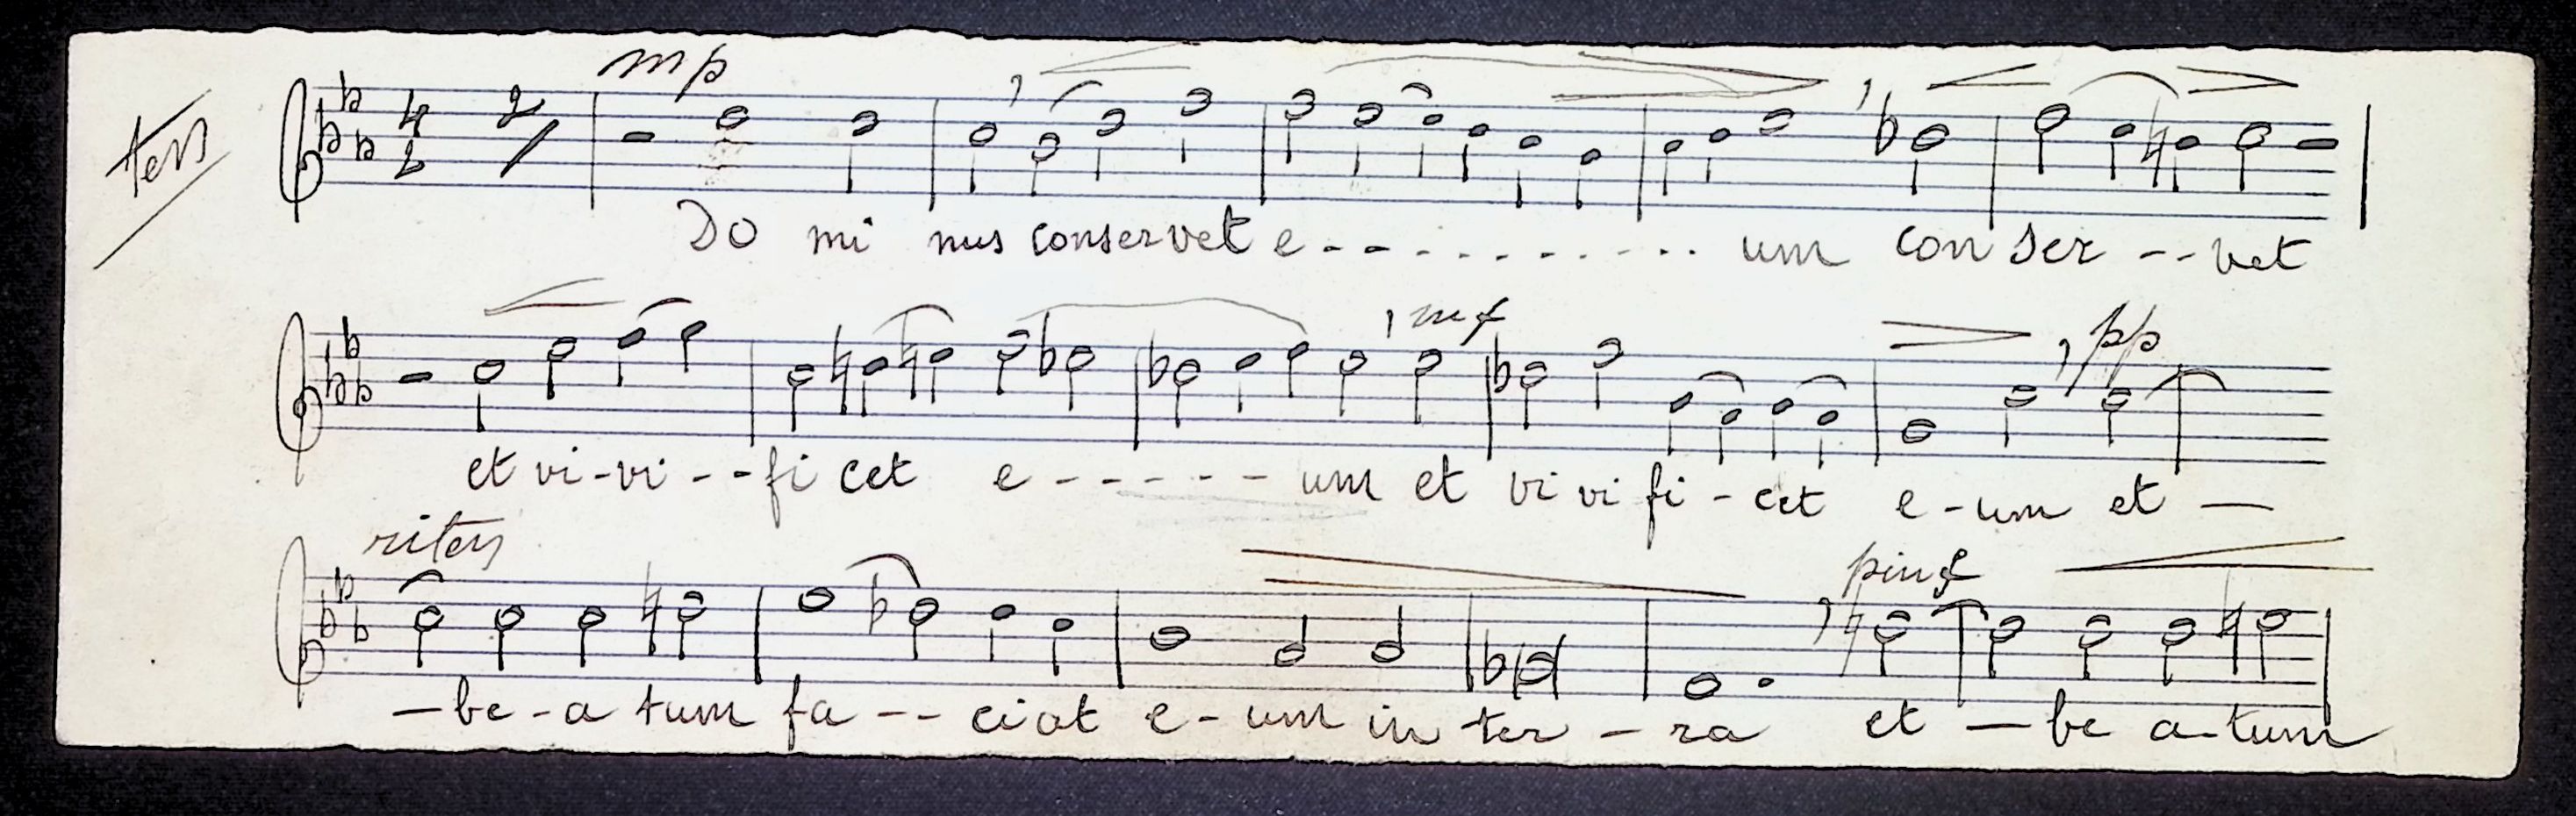 mp
ten
4 2
2
Do mi nus conservet e - - - - - - - - - - um con ser - - vet
mf
pp
et vi - vi - - fi cet e - - - - - - um et vi vi fi - cet e - um et —
riten
— be - a tum fa - - ciat e - um in ter - ra et — be a - tum